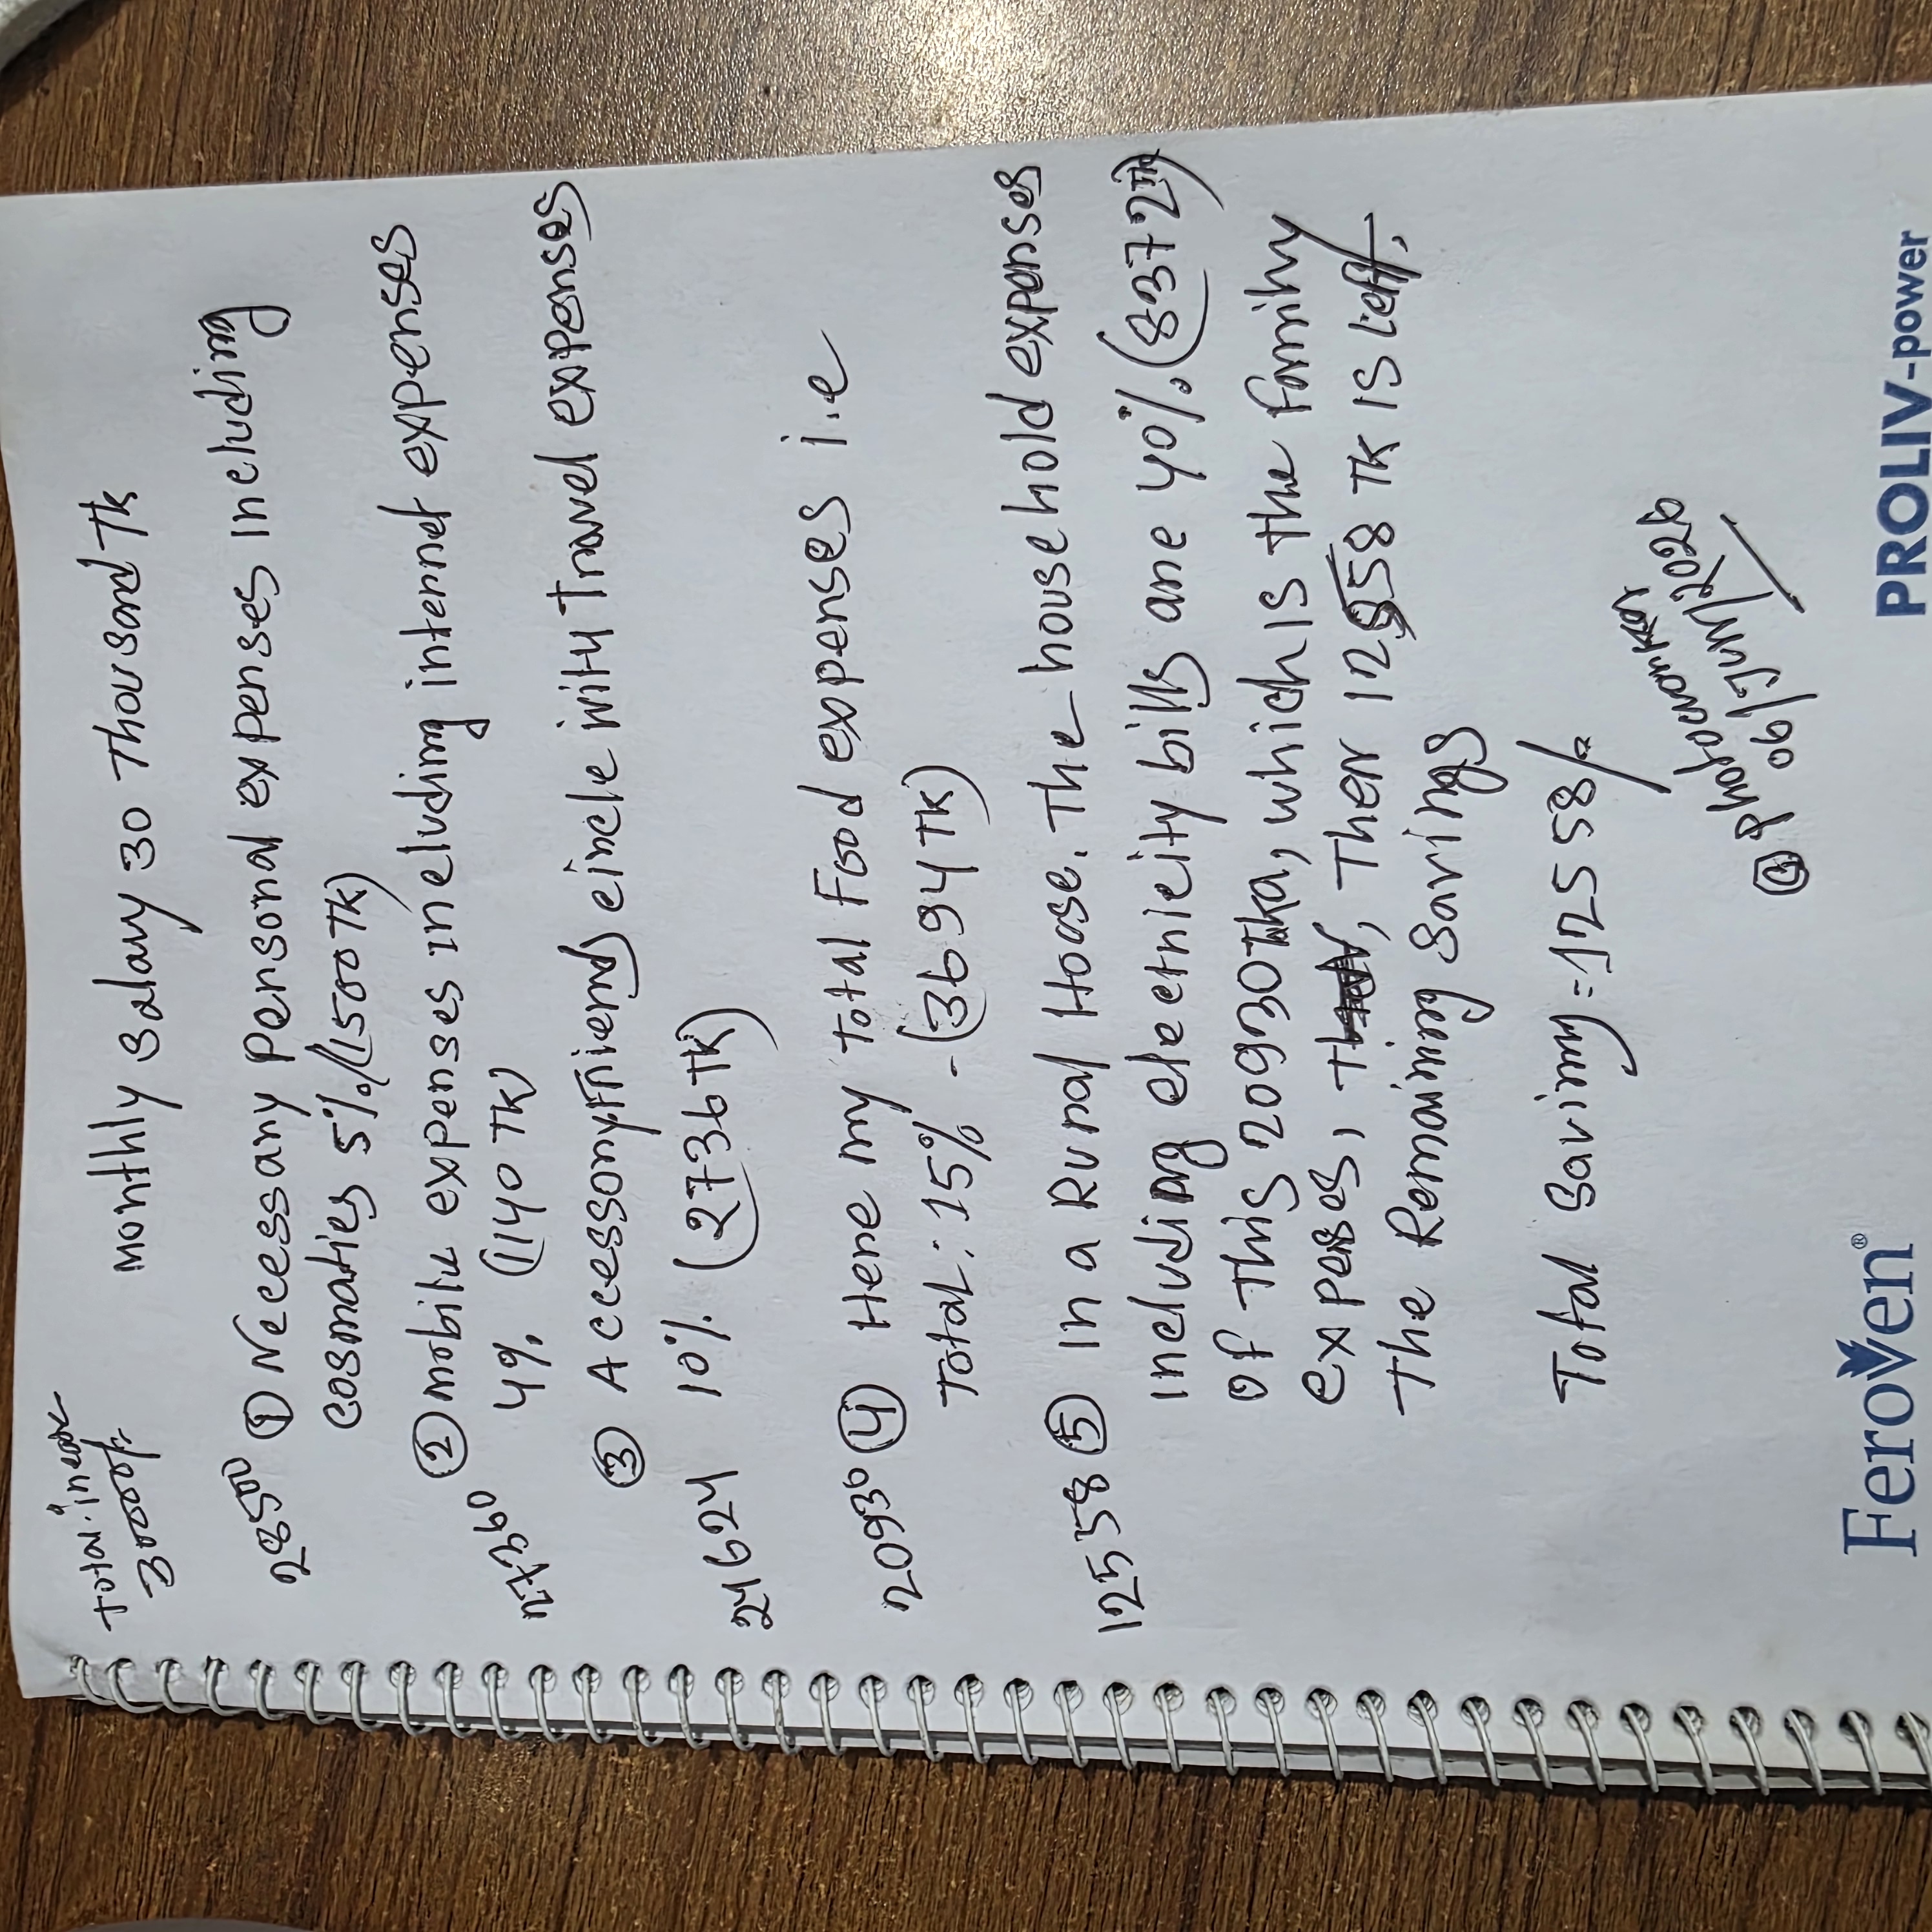 Total: income
30000/-
Monthly Salary 30 Thousand Tk
28500 ① Necessary Personal expenses including
cosmaties 5% (1500Tk)
② mobile expenses including internet expenses
27360 4% (1140 Tk)
③ Accessory Friends circle with Travel expenses
24624 10% (2736 Tk)
20930 ④ Here my Total Food expenses i.e
Total: 15% - (3694Tk)
12558 ⑤ In a Rural House. The household expenses
including electricity bills are 40%. (8372Tk)
of This 20930Tka, which is the family
expases, , Then 12558 TK is left.
The Remaining Savings
Total Saving = 12558/-
06/Jun/2026
Feroven®
PROLIV-power